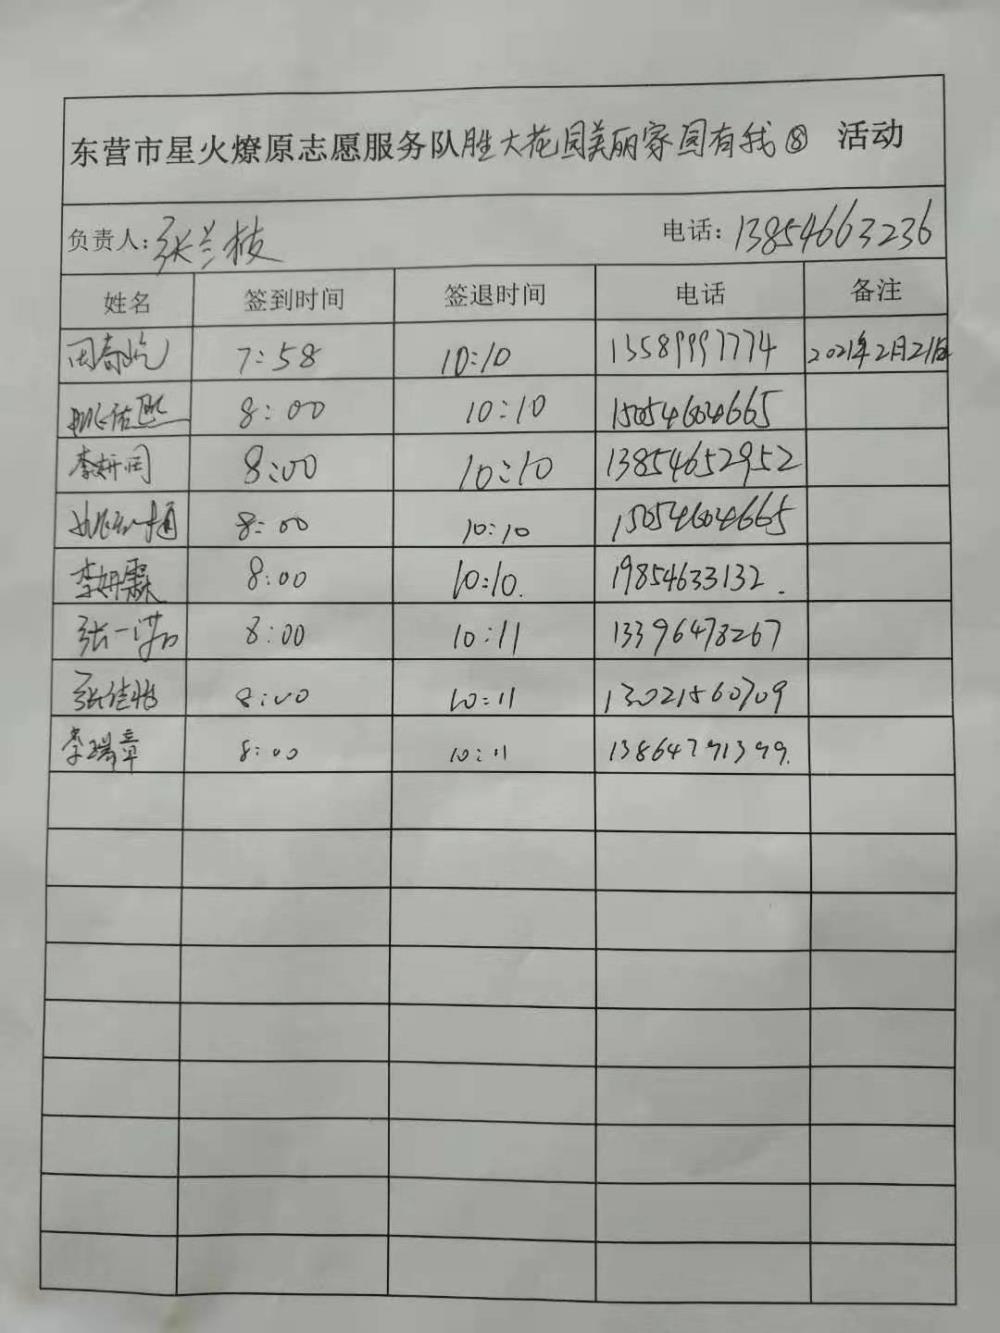 东营市星火燎原志愿服务队胜大花园美丽家园有我⑧ 活动
负责人：张兰枝 电话：13854663236
姓名 签到时间 签退时间 电话 备注
周奇屹 7:58 10:10 13589997774 2021年2月21日
8:00 10:10 15054604665
李妍润 8:00 10:10 13854652952
8:00 10:10 15054604665
李妍霖 8:00 10:10. 19854633132.
张一诺 8:00 10:11 13396478267
张佳怡 8:00 10:11 13021560709
李瑞章 8:00 10:11 13864791399.